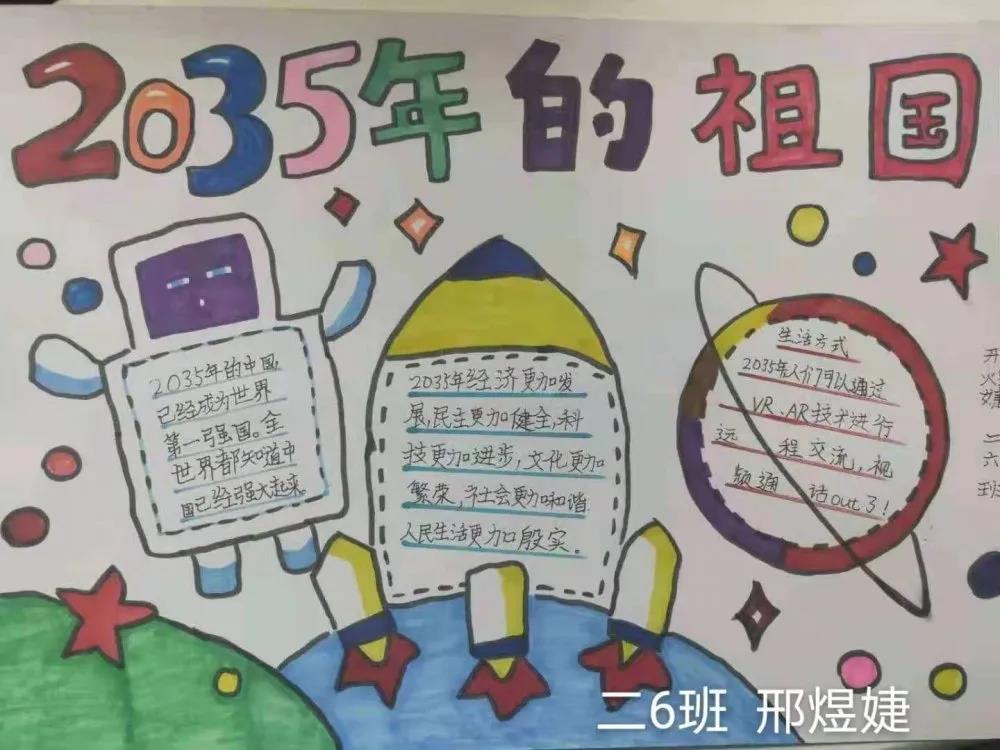 2035年的祖国
2035年的中国,
已经成为世界
第一强国。全
世界都知道中
国已经强大起来。
2035年经济更加发
展,民主更加健全,科
技更加进步,文化更加
繁荣,社会更加和谐.
人民生活更加殷实.
生活方式
2035年人们可以通过
VR、AR技术进行
远程交流,视
频通话out了!
开
火
嫌
二
六
班
二6班 邢煜婕